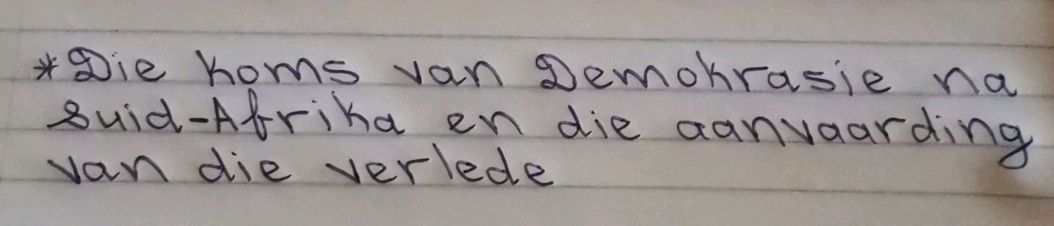 *Die koms van Demokrasie na
Suid-Afrika en die aanvaarding
van die verlede